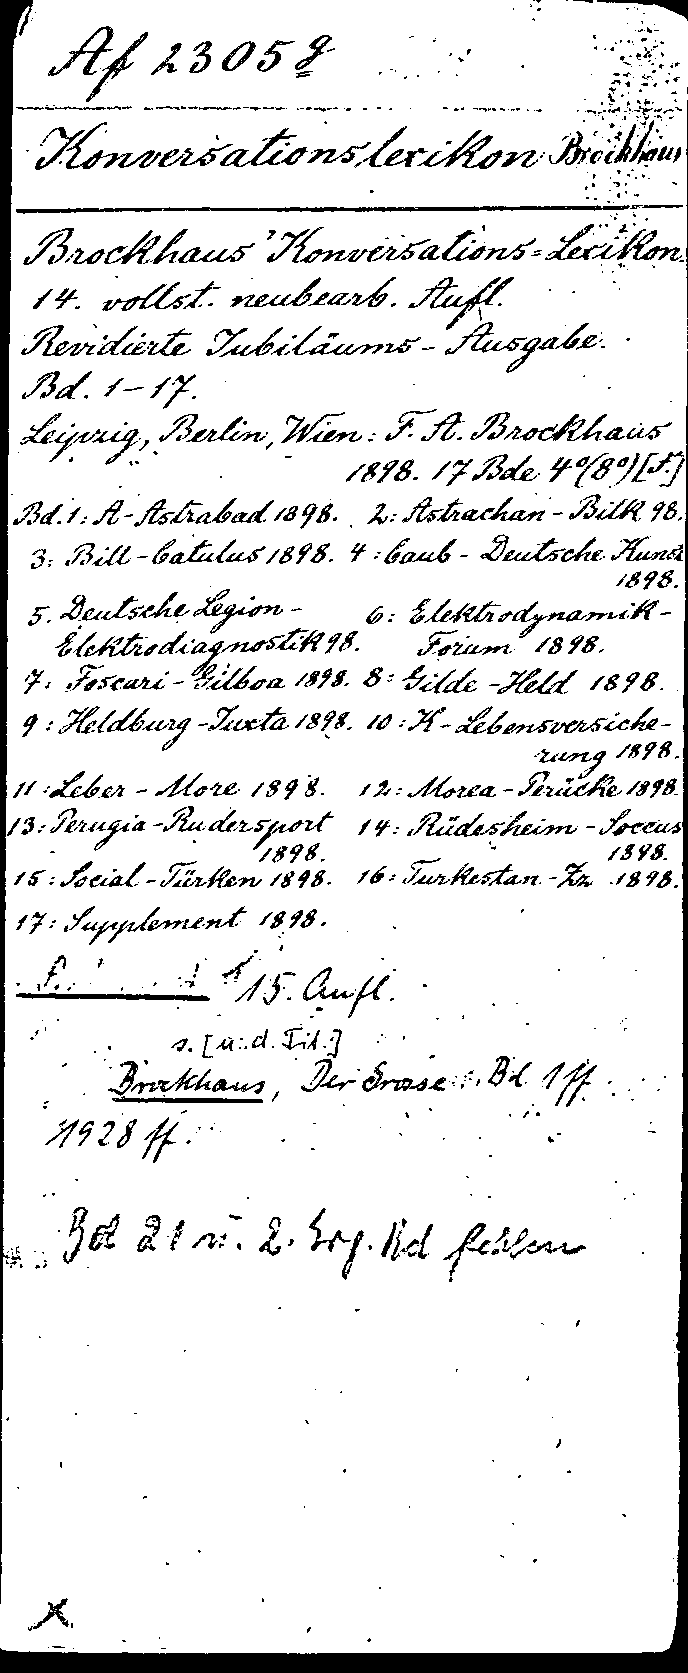 Af 2305 g
Konversationslexikon Brockhaus
Brockhaus' Konversations-Lexikon.
14. vollst. neubearb. Aufl.
Revidierte Jubiläums-Ausgabe.
Bd. 1-17.
Leipzig, Berlin, Wien: F. A. Brockhaus
1898. 17 Bde 4°(8°) [F.]
Bd. 1: A-Astrabad 1898. 2: Astrachan-Bilk 98.
3: Bill-Catulus 1898. 4: Caub-Deutsche Kunst
1898.
5. Deutsche Legion- 6: Elektrodynamik-
Elektrodiagnostik 98. Forum 1898.
7: Foscari-Gilboa 1898. 8: Gilde-Held 1898.
9: Heldburg-Juxta 1898. 10: K-Lebensversiche-
rung 1898.
11: Leber-More 1898. 12: Morea-Perücke 1898.
13: Perugia-Rudersport 14: Rüdesheim-Soccus
1898. 1898.
15: Social-Türken 1898. 16: Turkestan-Zz 1898.
17: Supplement 1898.
15. Aufl.
s. [u. d. Tit.]
Brockhaus, Der Grosse. Bd 1 ff
1928 ff.
Bd 21 u. 2. Erg. Bd fehlen
x